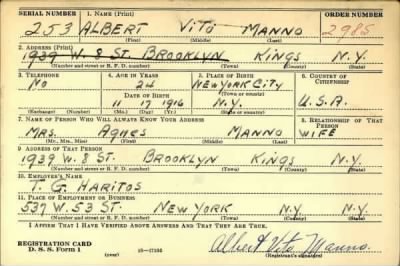 SERIAL NUMBER 1. NAME (Print) ORDER NUMBER
253 ALBERT VITO MANNO 2985
(First) (Middle) (Last)
2. ADDRESS (Print)
1939 W. 8 ST. BROOKLYN KINGS N.Y.
(Number and street or R. F. D. number) (Town) (County) (State)
3. TELEPHONE 4. AGE IN YEARS 5. PLACE OF BIRTH 6. COUNTRY OF CITIZENSHIP
NO 24 NEW YORK CITY
(Town or county)
DATE OF BIRTH
11 17 1916 N.Y. U.S.A.
(Exchange) (Number) (Mo.) (Day) (Yr.) (State or country)
7. NAME OF PERSON WHO WILL ALWAYS KNOW YOUR ADDRESS 8. RELATIONSHIP OF THAT PERSON
MRS. AGNES MANNO WIFE
(Mr., Mrs., Miss) (First) (Middle) (Last)
9. ADDRESS OF THAT PERSON
1939 W. 8 ST. BROOKLYN KINGS N.Y.
(Number and street or R. F. D. number) (Town) (County) (State)
10. EMPLOYER'S NAME
T. G. HARITOS
11. PLACE OF EMPLOYMENT OR BUSINESS
537 W. 53 ST. NEW YORK N.Y. N.Y.
(Number and street or R. F. D. number) (Town) (County) (State)
I AFFIRM THAT I HAVE VERIFIED ABOVE ANSWERS AND THAT THEY ARE TRUE.
REGISTRATION CARD
D. S. S. Form 1 (over) Albert Vito Manno
(Registrant's signature)